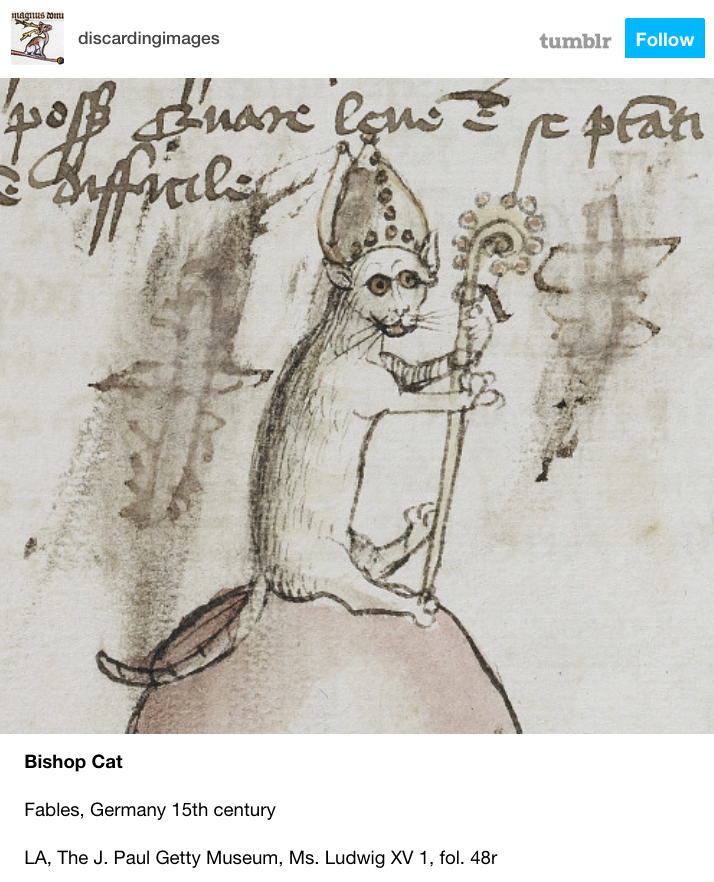 magnus domi
discardingimages
tumblr
Follow
poss
difficile
Bishop Cat
Fables, Germany 15th century
LA, The J. Paul Getty Museum, Ms. Ludwig XV 1, fol. 48r